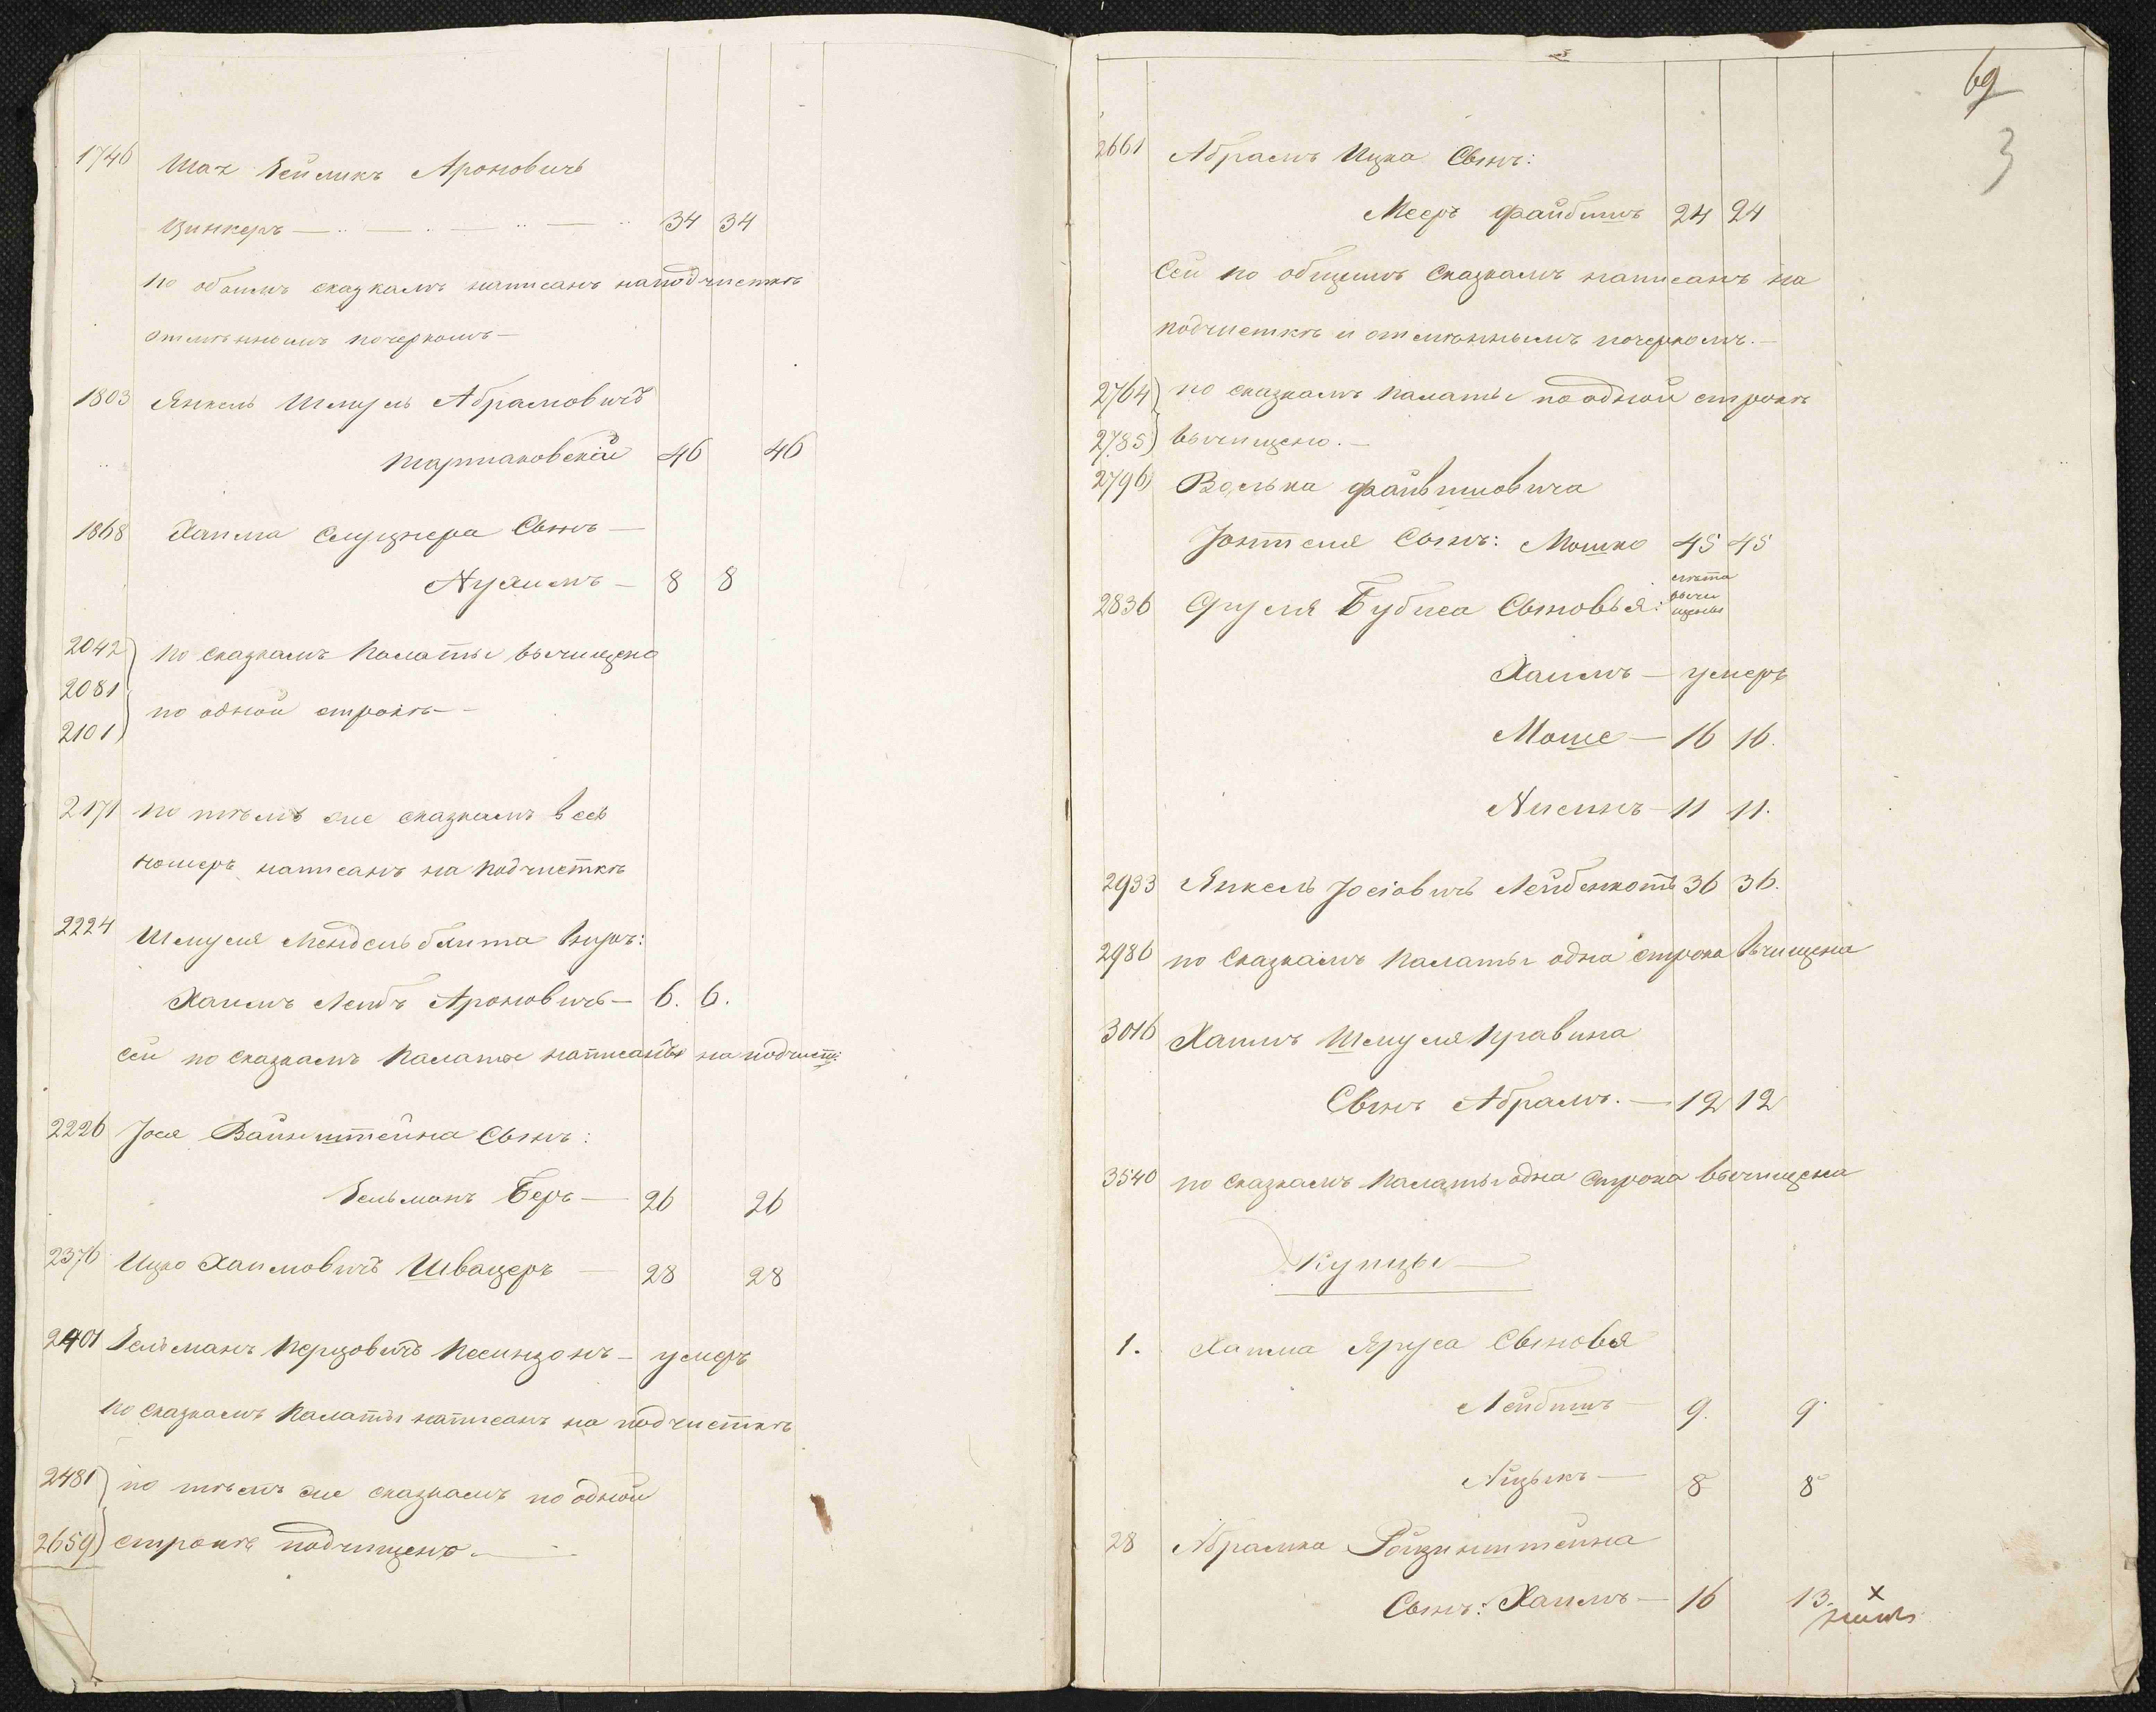 1746 Шая Зейликъ Ароновичъ
Цинкеръ — 34 34
по обоимъ сказкамъ написанъ на подчисткѣ
отмѣннымъ почеркомъ —
1803 Янкель Шмуль Абрамовичъ
Тартаковскій 46 46
1868 Хаима Слуцкера Сынъ —
Нухимъ — 8 8
2042 по сказкамъ Палаты вычищено
2081
по одной строкѣ —
2101
2171 по тѣмъ же сказкамъ весь
номеръ написанъ на подчисткѣ
2224 Шмуля Мендельблита внукъ:
Хаимъ Лейбъ Ароновичъ — 6. 6.
сей по сказкамъ Палаты написанъ на подчист:
2226 Іося Вайнштейна Сынъ:
Зельманъ Беръ — 26 26
2376 Ицко Хаимовичъ Швацеръ — 28 28
2401 Зельманъ Перцовичъ Песинзонъ — умеръ
по сказкамъ Палаты написанъ на подчисткѣ
2481 по тѣмъ же сказкамъ по одной
2659 строкѣ подчищено. —
69
3
2661 Абрамъ Ицка Сынъ:
Мееръ Файбишъ 24 24
Сей по общимъ сказкамъ написанъ на
подчисткѣ и отмѣннымъ почеркомъ. —
2764 по сказкамъ Палаты по одной строкѣ
2785 вычищено. —
2796 Волька Файвишовича
Іонтеля Сынъ: Мошко 45 45
лѣта
вычи
щены
2836 Сруля Бубиса Сыновья:
Хаимъ — умеръ
Моше — 16 16.
Нисинъ — 11 11.
2933 Янкель Іосіовичъ 36 36.
2986 по сказкамъ Палаты одна строка вычищена
3016 Хаимъ Шмуля Кравица
Сынъ Абрамъ. — 12 12
3540 по сказкамъ Палаты одна строка вычищена
Купцы —
1. Хаима Яруса Сыновья
Лейбишъ — 9. 9.
Айзыкъ — 8 8
28 Абрамка Ройзинштейна
Сынъ: Хаимъ — 16 13. х